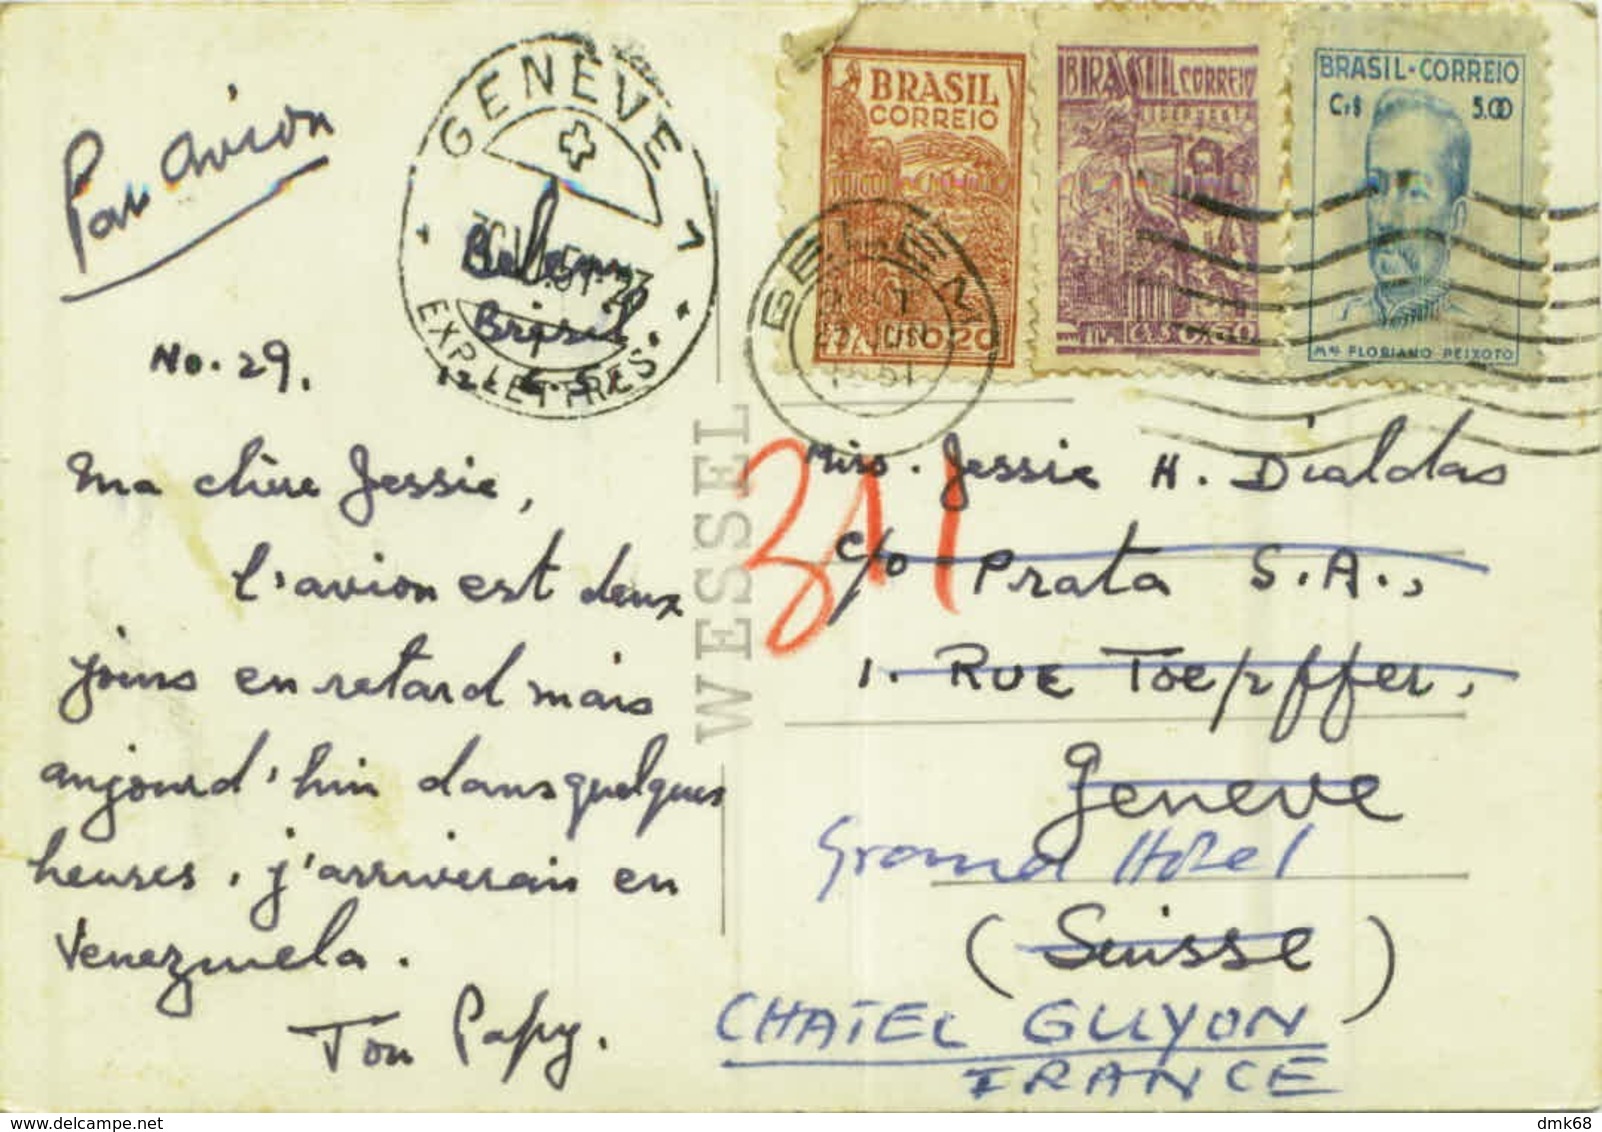 Par avion
GENÈVE 1
EXP. LETTRES
Belem
Brésil
No. 29.
Ma chère Jessie,
l'avion est deux
jours en retard mais
aujourd'hui dans quelques
heures, j'arriverais en
Venezuela.
Ton Papy.
WESSEL
BRASIL
CORREIO
0,20
BRASIL CORREIO
BRASIL-CORREIO
Cr$ 5.00
Mal FLORIANO PEIXOTO
BELEM
JUN
1951
Miss. Jessie H. Dialdas
c/o Prata S.A.,
1. RUE Toepffer,
Geneve
Grand Hotel
(Suisse)
CHATEL GUYON
FRANCE
dmk68
www.delcampe.net